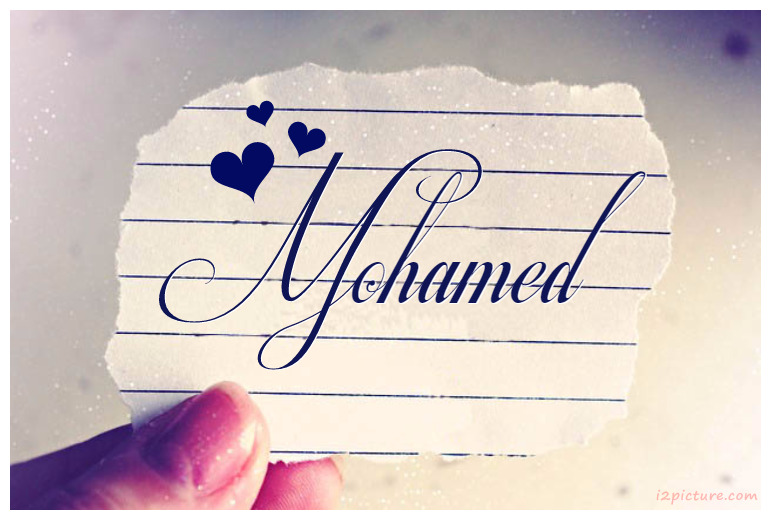 Mohamed
i2picture.com